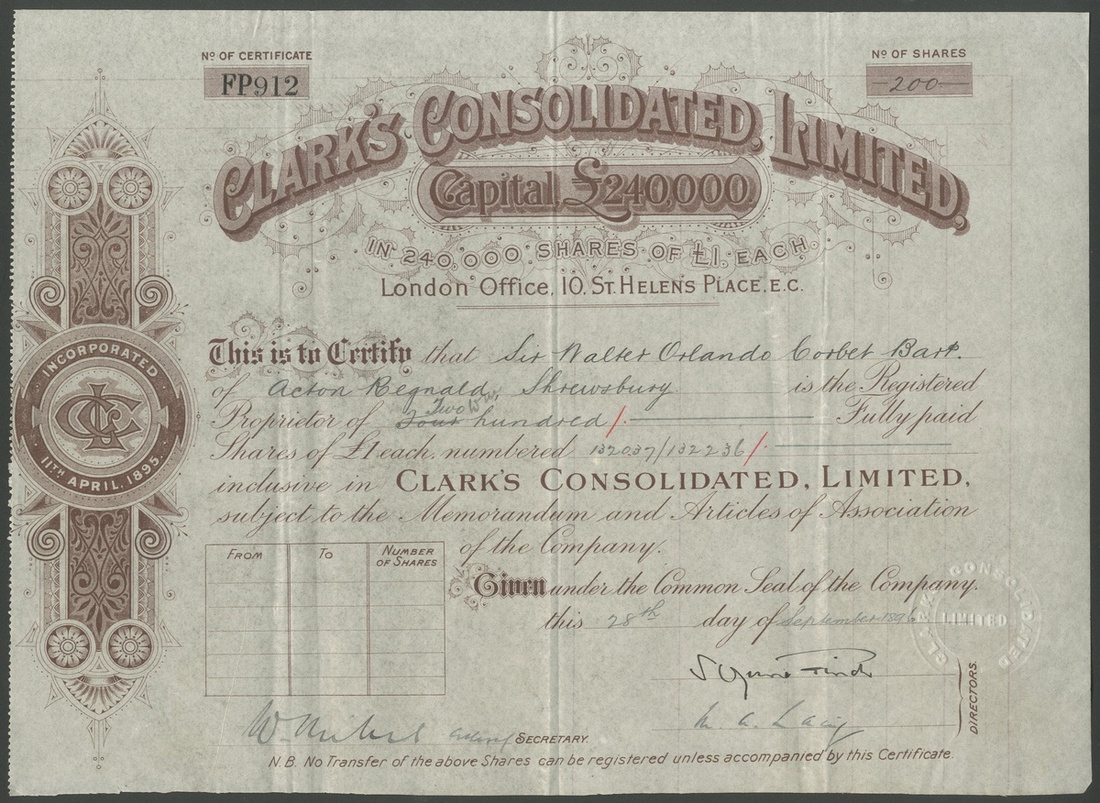 Nº OF CERTIFICATE
FP912
Nº OF SHARES
200
CLARK'S CONSOLIDATED, LIMITED,
Capital £240,000.
IN 240,000 SHARES OF £1. EACH.
London Office, 10, St Helens Place, E.C.
INCORPORATED
11TH APRIL, 1895.
This is to Certify that Sir Walter Orlando Corbet Bart.
of Acton Regnald, Shrewsbury is the Registered
Two
Proprietor of Four hundred/. Fully paid
Shares of £1 each, numbered 132037/132236/
inclusive in CLARK'S CONSOLIDATED, LIMITED,
subject to the Memorandum and Articles of Association
of the Company.
FROM TO NUMBER OF SHARES
Given under the Common Seal of the Company.
this 28th day of September 1896
CONSOLIDATED
LIMITED
DIRECTORS.
SECRETARY.
N.B. No Transfer of the above Shares can be registered unless accompanied by this Certificate.